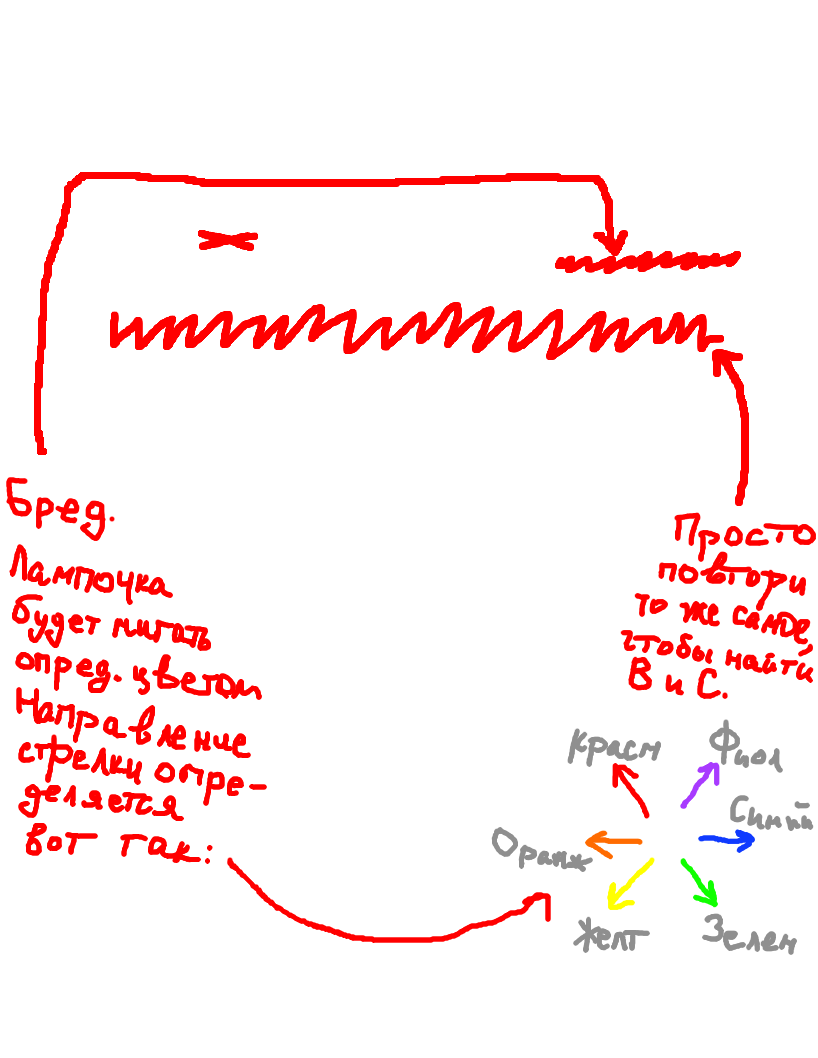 Бред.
Лампочка
будет мигать
опред. цветом
Направление
стрелки опре-
деляется
вот так:
Просто
повтори
то же самое,
чтобы найти
В и С.
Красн
Фиол
Синий
Оранж
Желт
Зелен